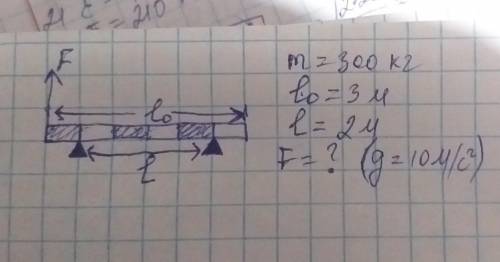 F
l₀
l
m = 300 кг
l₀ = 3 м
l = 2 м
F = ? (g = 10 м/с²)